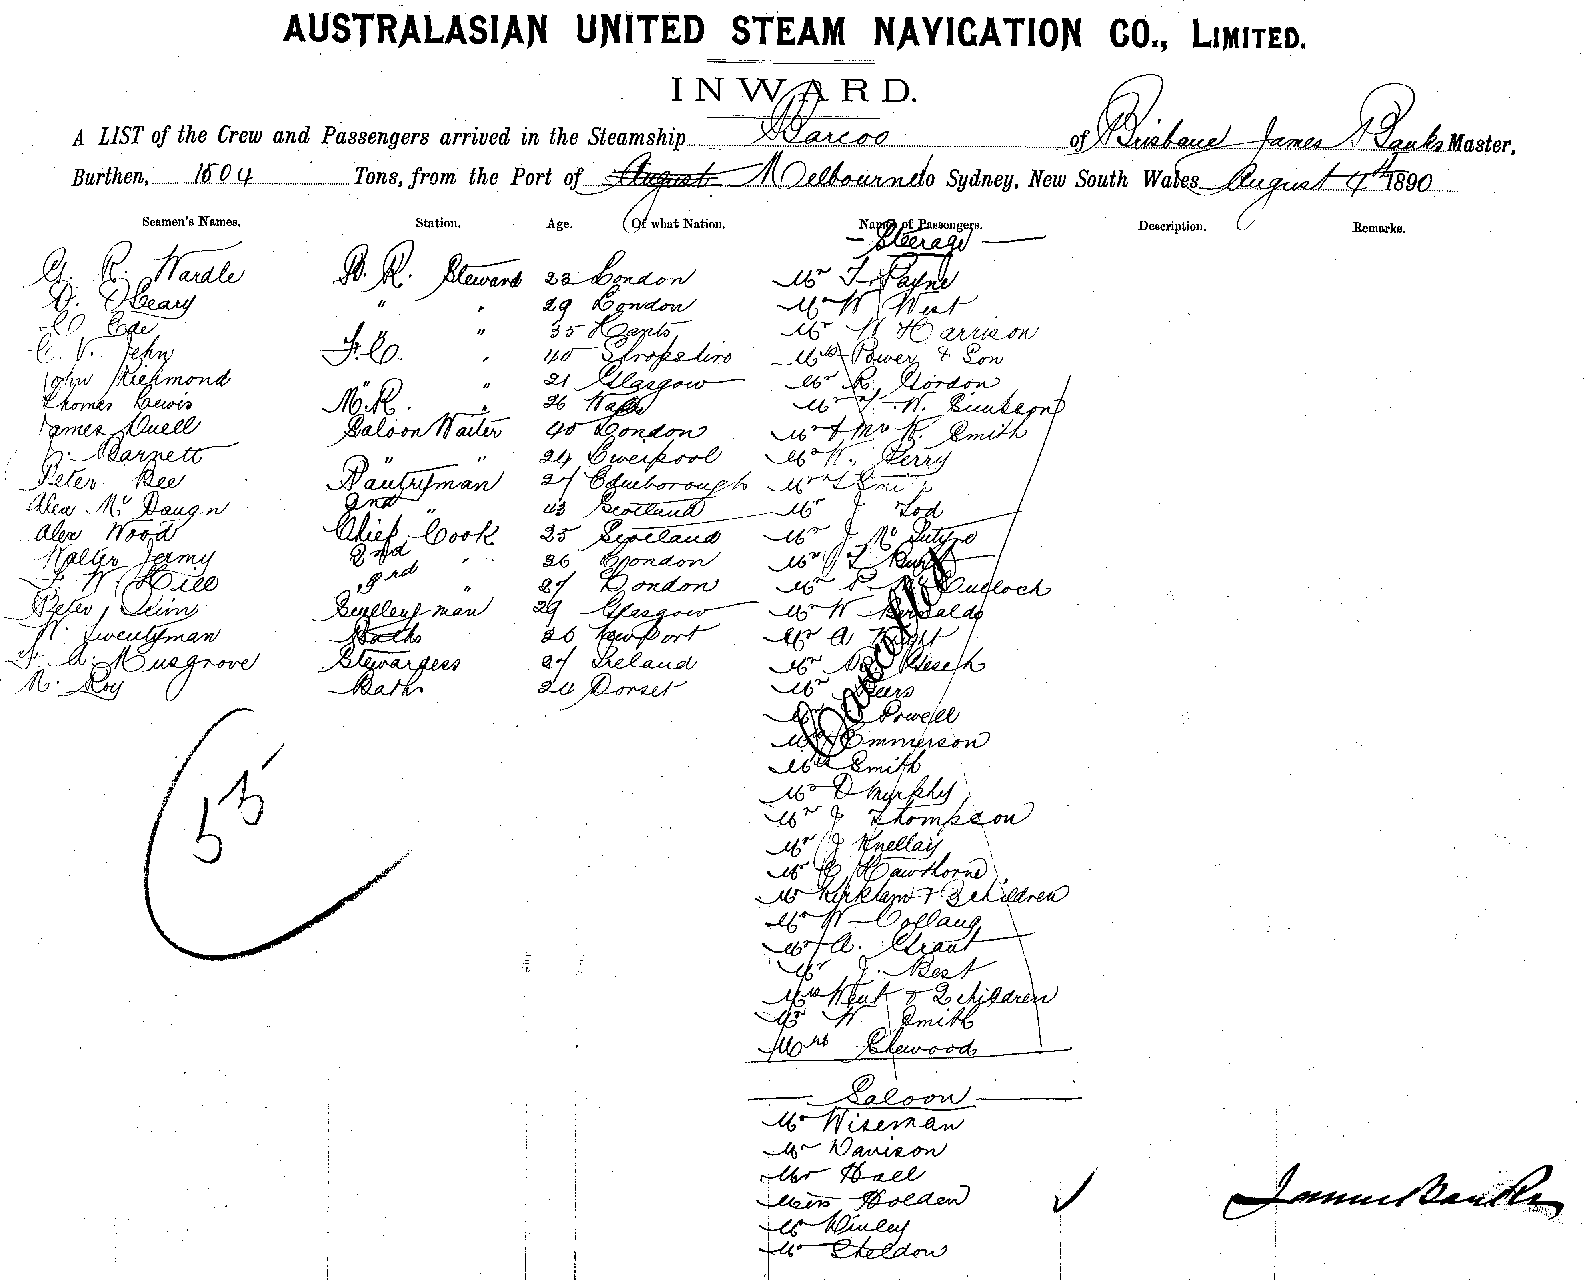 AUSTRALASIAN UNITED STEAM NAVIGATION CO., LIMITED.
INWARD.
A LIST of the Crew and Passengers arrived in the Steamship Barcoo of Brisbane James Banks Master,
Burthen, 1504 Tons, from the Port of August Melbourne to Sydney, New South Wales August 4th 1890
Seamen's Names. Station. Age. Of what Nation. Names of Passengers. Description. Remarks.
Steerage
G. R. Wardle B. R. Steward 23 London Mr T. Payne
D. O'Leary " " 29 London Mr W West
Ede " " 35 Hants Mr W Harrison
C. V. Jehn F. C. " 40 Shropshire Mrs Power & Son
John Richmond " " 21 Glasgow Mr R. Gordon
Thomas Lewis M. R. " 26 Wales Mr W.
James Quell Saloon Waiter 40 London Mr & Mrs R. Smith
Barnett " " 24 Liverpool Mr W. Perry
Peter Bee Pantryman 27 Edinborough
Alex Mc 2nd " 43 Scotland Mr J Tod
Alex Wood Chief Cook 25 Scotland Mr J McIntyre
Walter Jermy 2nd " 26 London Mr
F. W Hill 3rd " 27 London Mr Culloch
Peter Scullery man 29 Glasgow Mr W
W. Twentyman Baths 26 Newport Mr A
F. A. Musgrove Stewardess 27 Ireland Mr
M. Roy Bath 20 Dorset Mr
Cancelled
Powell
Emmerson
Mrs Smith
Mr D Murphy
Mr J Thompson
Mr J Knellay
Mr Hawthorne
Kirkland & 3 children
Mr W
Mr A. Grant
Mr J. Best
Mrs & 2 children
Mr W Smith
Mrs
55
Saloon
Mr Wiseman
Mr Davison
Mr Hall
Miss Holden
Mr
Mr Sheldon
James Banks